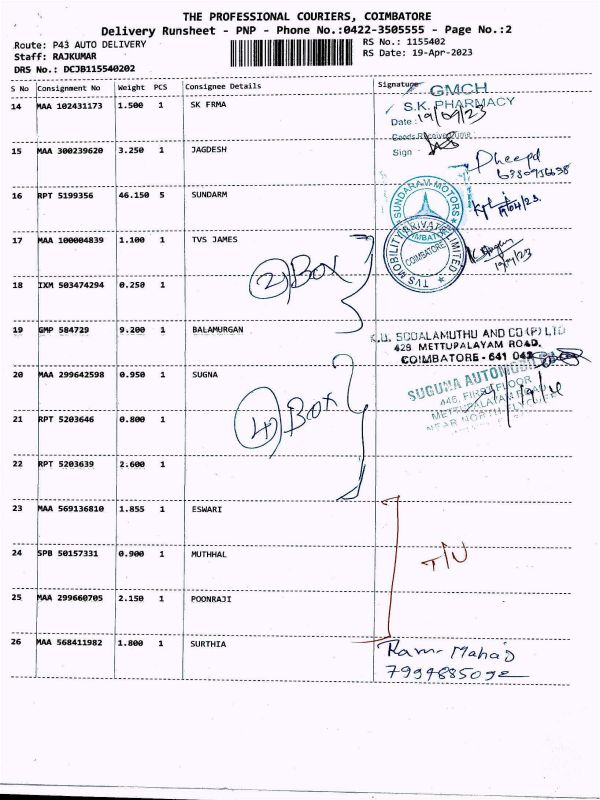 THE PROFESSIONAL COURIERS, COIMBATORE
Delivery Runsheet - PNP - Phone No.:0422-3505555 - Page No.:2
Route: P43 AUTO DELIVERY
RS No.: 1155402
Staff: RAJKUMAR
RS Date: 19-Apr-2023
DRS No.: DCJB115540202
S No Consignment No Weight PCS Consignee Details Signature
14 MAA 102431173 1.500 1 SK FRMA
GMCH
S.K. PHARMACY
Date: 19/04/23
Sign
15 MAA 300239620 3.250 1 JAGDESH
Dheepd
16 RPT 5199356 46.150 5 SUNDARM
SUNDARAM MOTORS
COIMBATORE
17 MAA 100004839 1.100 1 TVS JAMES
TVS MOBILITY PRIVATE LIMITED
COIMBATORE
19/04/23
2) Box
18 IXM 503474294 0.250 1
19 GMP 584729 9.200 1 BALAMURGAN
K.U. SODALAMUTHU AND CO (P) LTD
428 METTUPALAYAM ROAD.
COIMBATORE - 641 043
20 MAA 299642598 0.950 1 SUGNA
SUGUNA AUTOMOBILES
446, FIRST FLOOR
METTUPALAYAM ROAD
4) Box
21 RPT 5203646 0.800 1
22 RPT 5203639 2.600 1
23 MAA 569136810 1.855 1 ESWARI
24 SPB 50157331 0.900 1 MUTHHAL
T/U
25 MAA 299660705 2.150 1 POONRAJI
26 MAA 568411982 1.800 1 SURTHIA
Ram- Mahad
7994885092